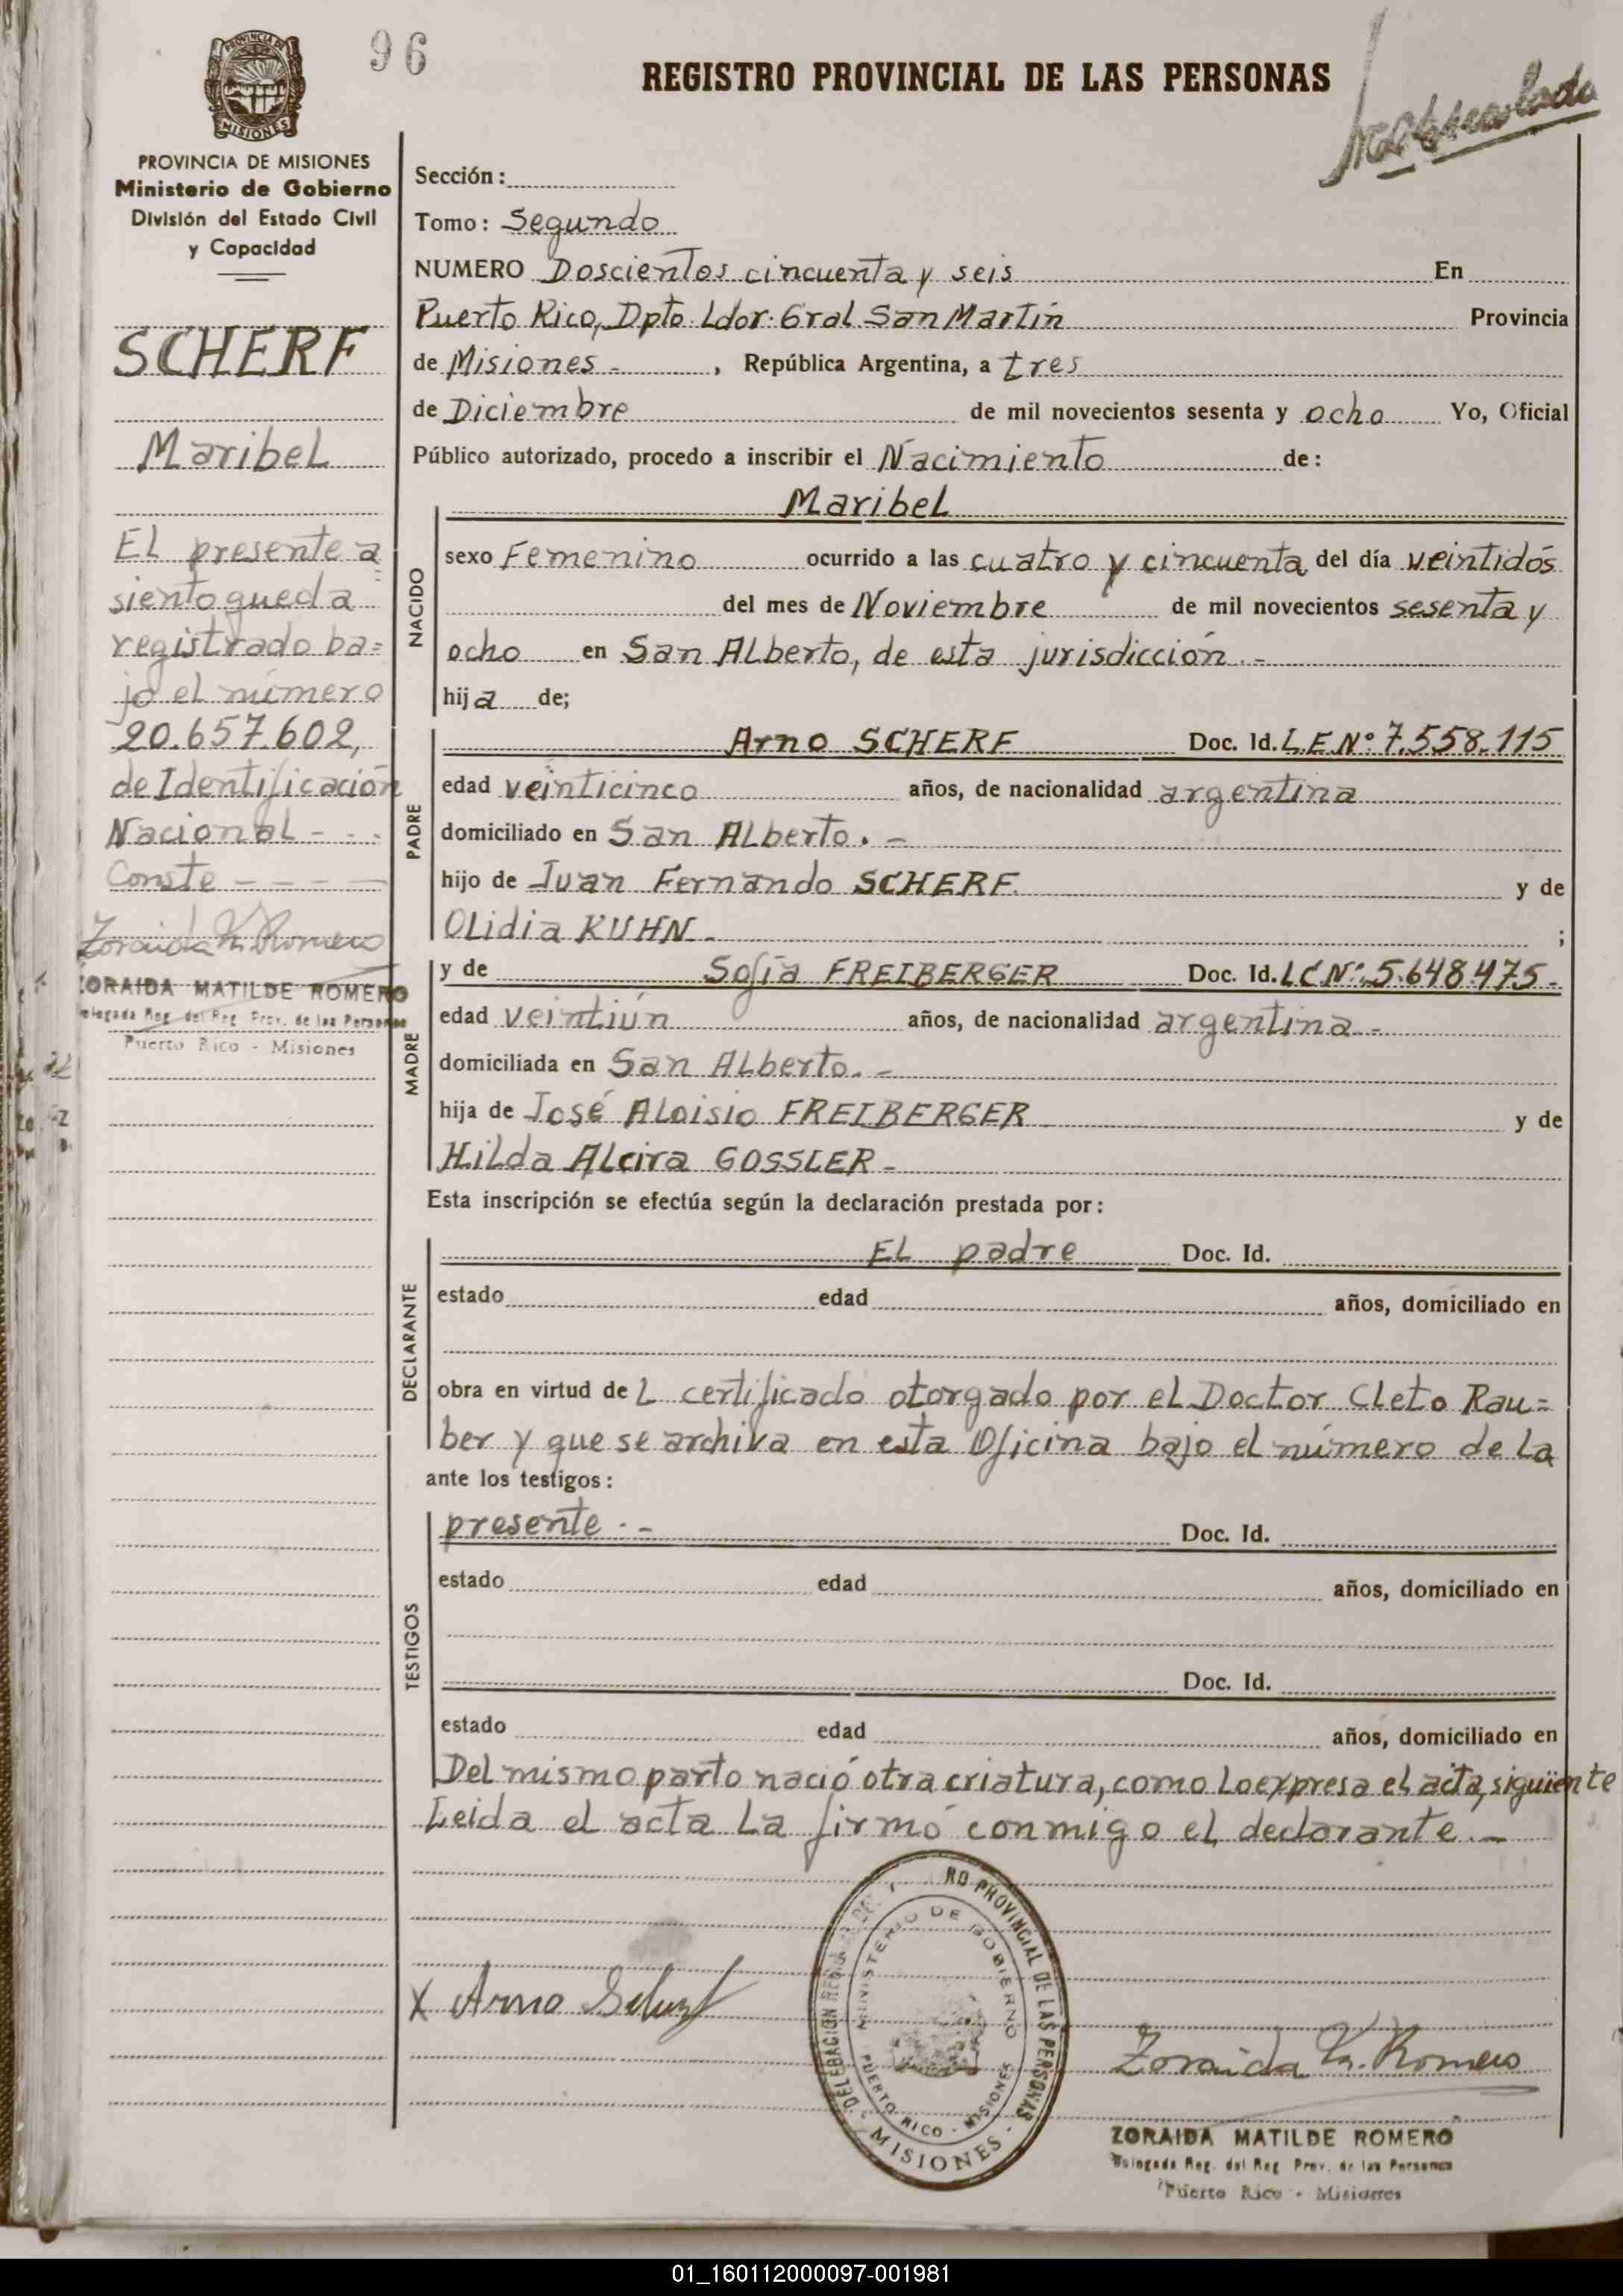 96
REGISTRO PROVINCIAL DE LAS PERSONAS
Matriculado
PROVINCIA DE MISIONES
Ministerio de Gobierno
División del Estado Civil
y Capacidad
SCHERF
Maribel
El presente a
siento queda
registrado ba=
jo el número
20.657.602,
de Identificación
Nacional - - -
Conste - - - -
Zoraida M. Romero
ZORAIDA MATILDE ROMERO
Delegada Reg. del Reg. Prov. de las Personas
Puerto Rico - Misiones
Sección:
Tomo: Segundo
NUMERO Doscientos cincuenta y seis En
Puerto Rico, Dpto Ldor. Gral San Martín Provincia
de Misiones - , República Argentina, a tres
de Diciembre de mil novecientos sesenta y ocho Yo, Oficial
Público autorizado, procedo a inscribir el Nacimiento de:
NACIDO
Maribel
sexo Femenino ocurrido a las cuatro y cincuenta del día veintidós
del mes de Noviembre de mil novecientos sesenta y
ocho en San Alberto, de esta jurisdicción.-
hija de;
PADRE
Arno SCHERF Doc. Id. L.E Nº 7.558.115
edad veinticinco años, de nacionalidad argentina
domiciliado en San Alberto.-
hijo de Juan Fernando SCHERF y de
Olidia KUHN- ;
MADRE
y de Sofía FREIBERGER Doc. Id. L C Nº 5.648.475-
edad veintiún años, de nacionalidad argentina-
domiciliada en San Alberto.-
hija de José Aloisio FREIBERGER y de
Hilda Alcira GOSSLER-
Esta inscripción se efectúa según la declaración prestada por:
DECLARANTE
El padre Doc. Id.
estado edad años, domiciliado en
obra en virtud de l certificado otorgado por el Doctor Cleto Rau=
ber y que se archiva en esta Oficina bajo el número de la
ante los testigos:
TESTIGOS
presente.- Doc. Id.
estado edad años, domiciliado en
Doc. Id.
estado edad años, domiciliado en
Del mismo parto nació otra criatura, como lo expresa el acta siguiente
Leida el acta la firmó conmigo el declarante.-
X Arno Scherf
PROVINCIAL DE LAS PERSONAS
MINISTERIO DE GOBIERNO
PUERTO RICO - MISIONES
MISIONES
Zoraida M. Romero
ZORAIDA MATILDE ROMERO
Delegada Reg. del Reg. Prov. de las Personas
Puerto Rico - Misiones
01_160112000097-001981